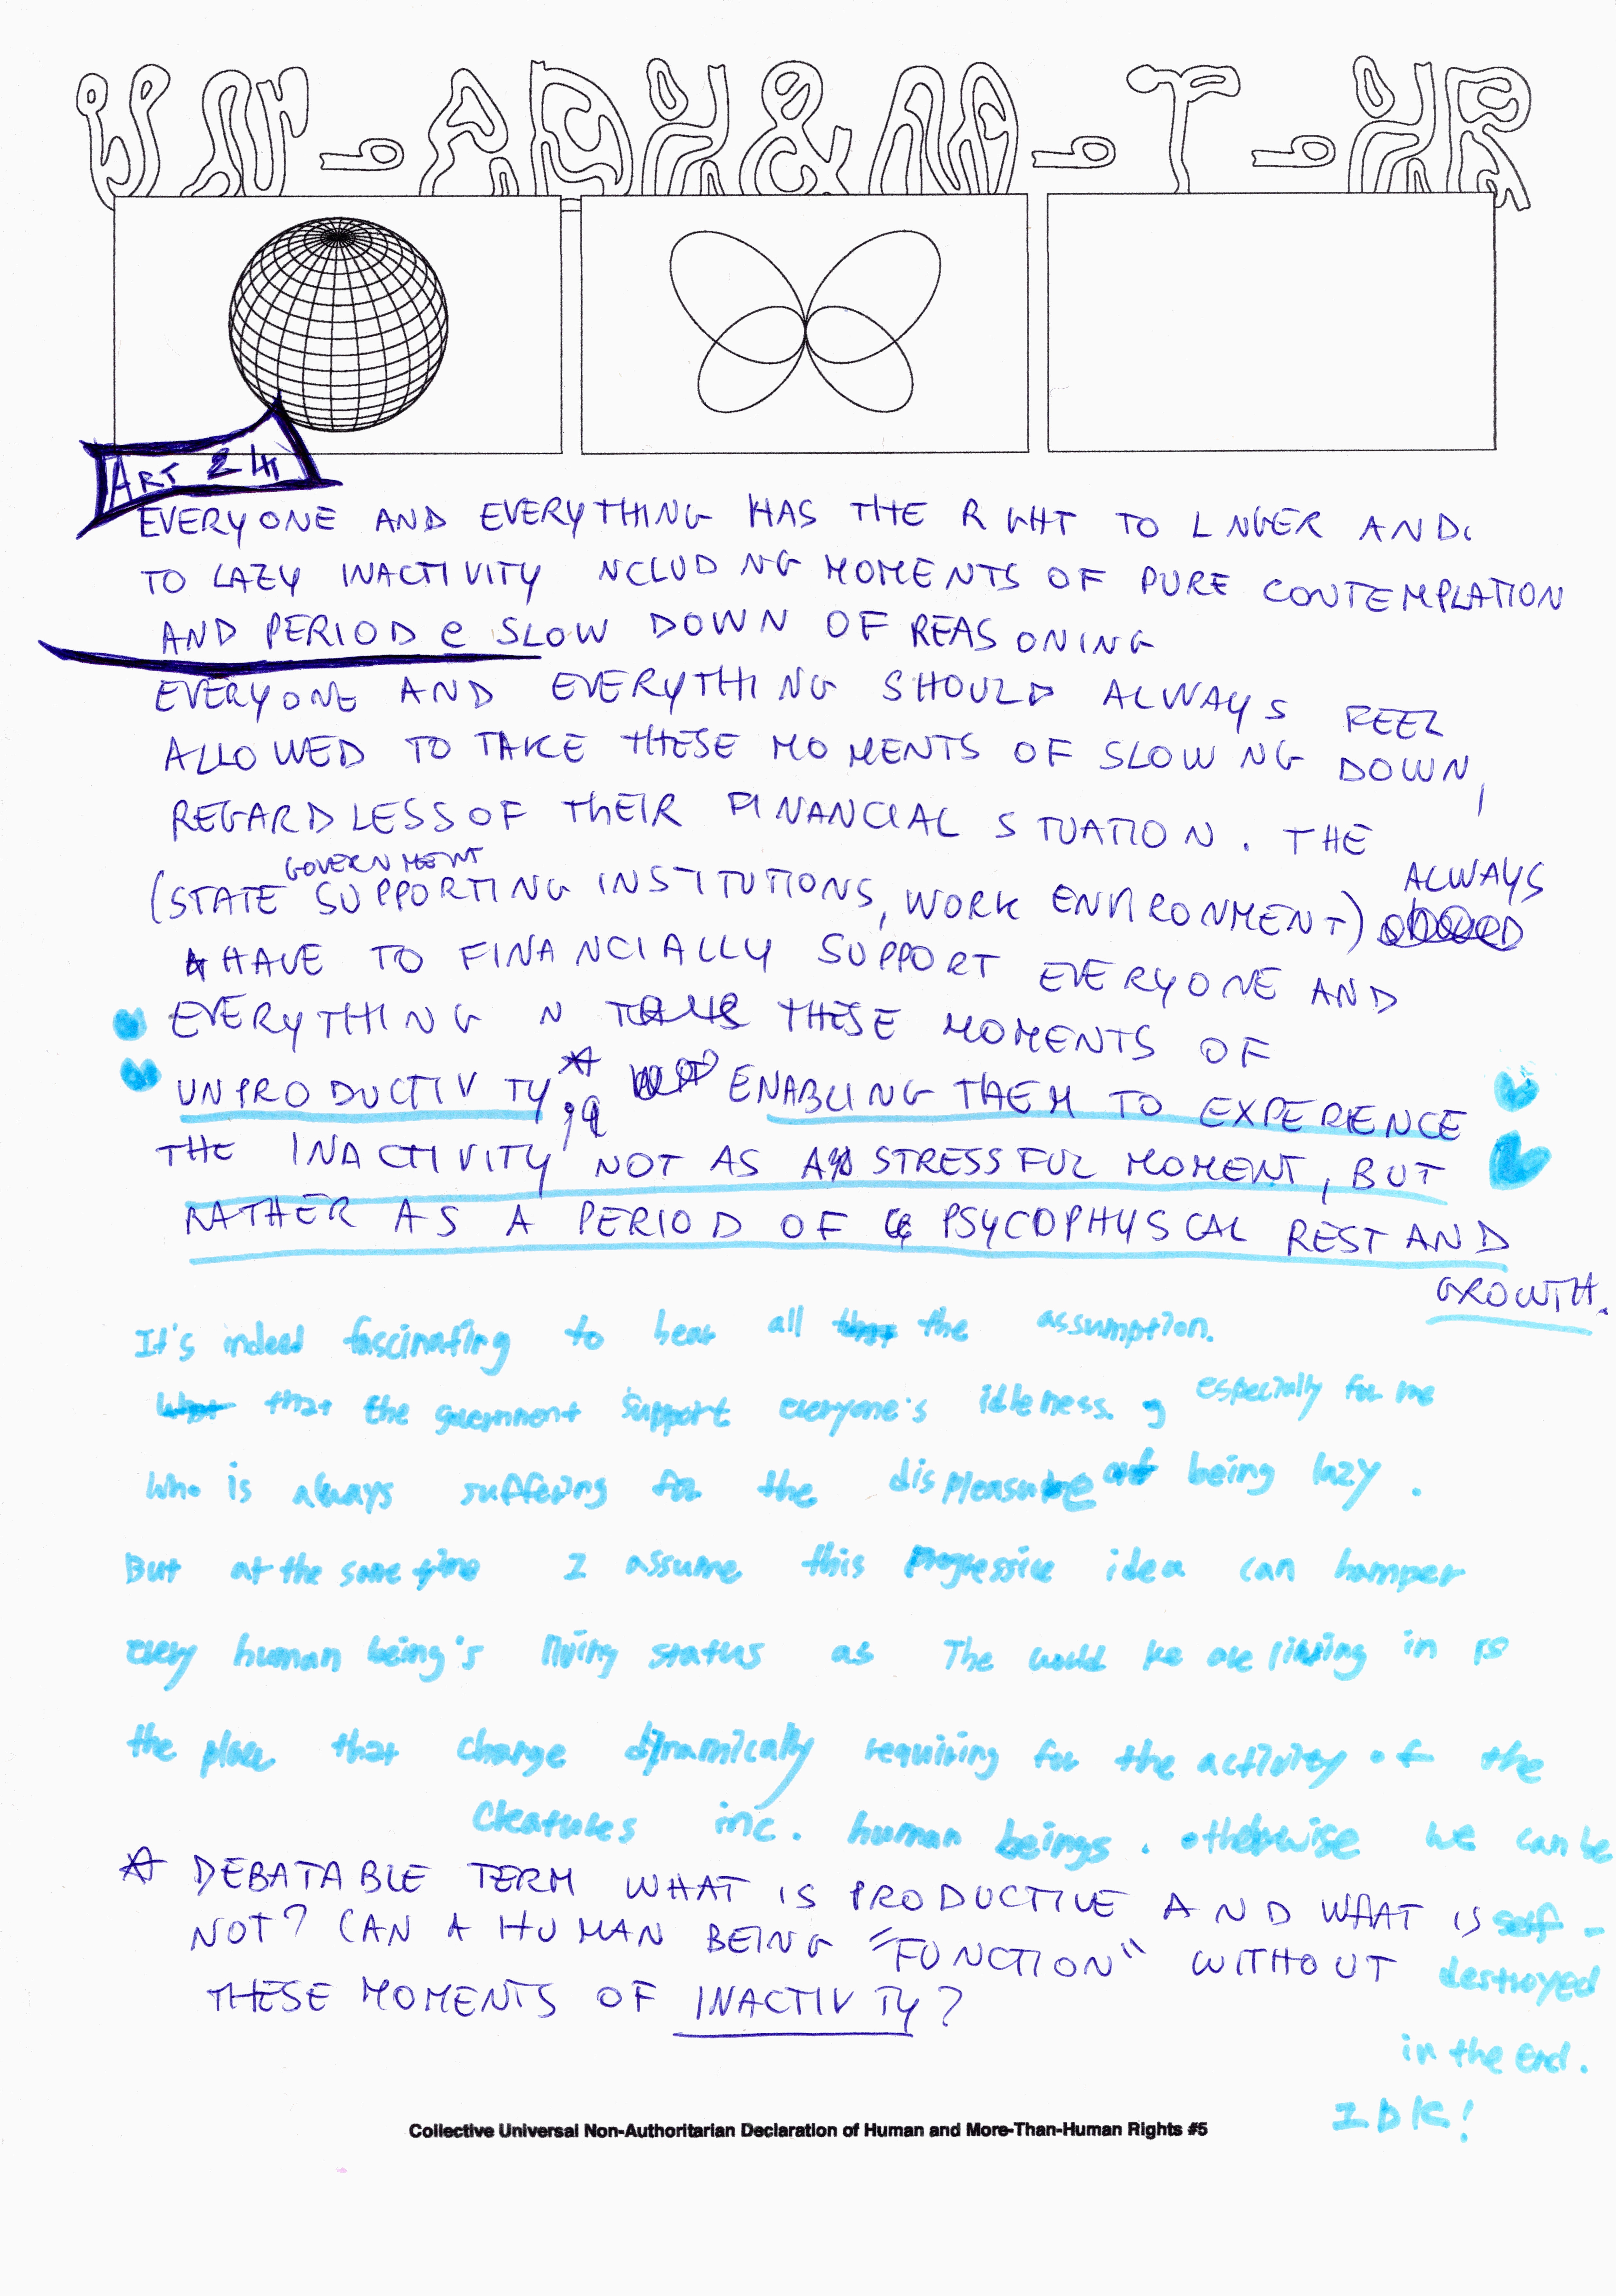 UN-ADH&M-T-HR
ART 24
EVERYONE AND EVERYTHING HAS THE R GHT TO L NGER AND
TO LAZY INACTIVITY NCLUD NG MOMENTS OF PURE CONTEMPLATION
AND PERIOD e SLOW DOWN OF REASONING
EVERYONE AND EVERYTHING SHOULD ALWAYS FEEL
ALLOWED TO TAKE THESE MOMENTS OF SLOW NG DOWN,
REGARDLESS OF THEIR FINANCIAL S TUATION. THE
GOVERNMENT
(STATE SUPPORTING INSTITUTIONS, WORK ENVIRONMENT) ALWAYS
HAVE TO FINANCIALLY SUPPORT EVERYONE AND
EVERYTHING N THESE MOMENTS OF
UNPRODUCTIV TY*, ENABLING THEM TO EXPERIENCE
THE INACTIVITY NOT AS A STRESSFUL MOMENT, BUT
RATHER AS A PERIOD OF PSYCOPHYSCAL REST AND
GROWTH.
It's indeed fascinating to hear all the assumption.
that the government support everyone's idleness. especially for me
who is always suffering for the displeasure of being lazy.
But at the same time I assume this progressive idea can hamper
every human being's living status as The world we are living in is
the place that change dynamically requiring for the activity of the
creatures inc. human beings. otherwise we can be
* DEBATABLE TERM WHAT IS PRODUCTIVE AND WHAT IS self-
NOT? CAN A HUMAN BEING "FUNCTION" WITHOUT destroyed
THESE MOMENTS OF INACTIV TY?
in the end.
IDK!
Collective Universal Non-Authoritarian Declaration of Human and More-Than-Human Rights #5